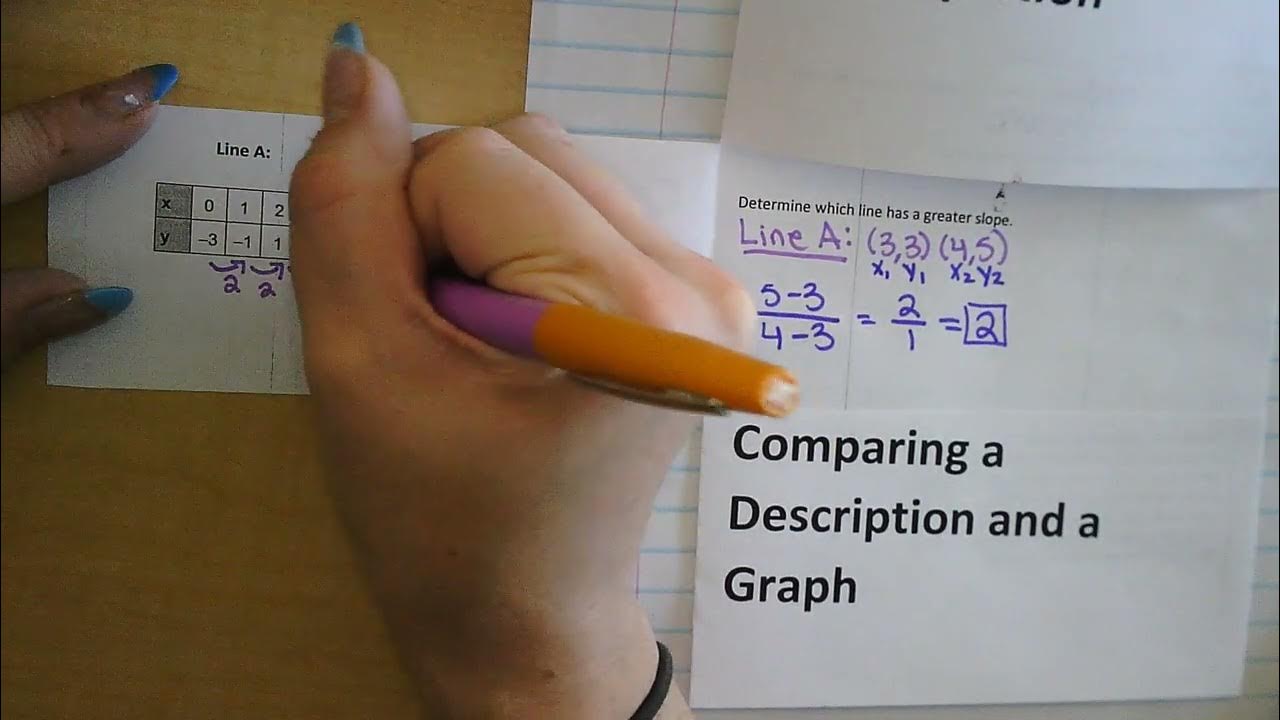 Line A:
x 0 1 2
y –3 –1 1
2 2
Determine which line has a greater slope.
Line A: (3,3) (4,5)
x₁ y₁ x₂ y₂
5-3
4-3
= 2/1 = 2
Comparing a
Description and a
Graph